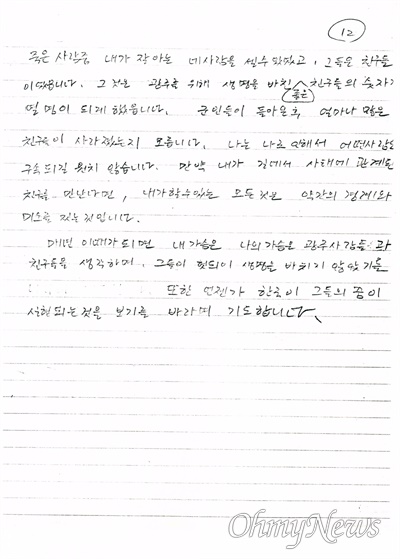 12
죽은 사람중 내가 잘아는 네사람을 셀수 있었고, 그들은 친구들
이었습니다. 그것은 광주를 위해 생명을 바친 좋은 친구들의 숫자가
열 명이 되게 했읍니다. 군인들이 돌아온후, 얼마나 많은
친구들이 사라졌는지 모릅니다. 나는 나로 인해서 어떤사람도
구속되길 원치 않습니다. 만약 내가 길에서 사태에 관계된
친구를 만난다면, 내가할수있는 모든것은 약간의 경례와
미소를 짓는것입니다.
매년 이때가 되면 내 가슴은 나의가슴은 광주사람들과
친구들을 생각하며, 그들이 헛되이 생명을 바치지 않았기를
또한 언젠가 한국이 그들의 꿈이
실현되는것을 보기를 바라며 기도합니다.
OhmyNews